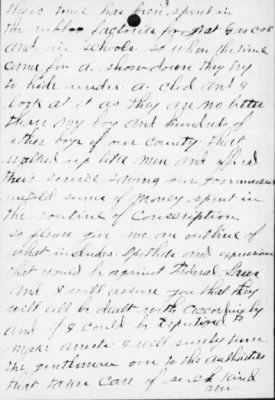 there time has been spent in
the rubber factories for Just Success
and in schools so when the time
came for a show down they try
to hide under a clod and I
look at it as they are no better
there my boy and hundreds of
other boys of our country that
walked up like men and offered
their service saving our government
untold sums of money spent in
the routine of Conscription
so please give me an outline of
what includes Epithets and expressions
that would be against Federal Laws
and I will assure you that they
will all be dealt with according ly
and if I could be Deputized to
make arrests I will surely turn
the gentlemen over to the authorities
that takes care of such kind